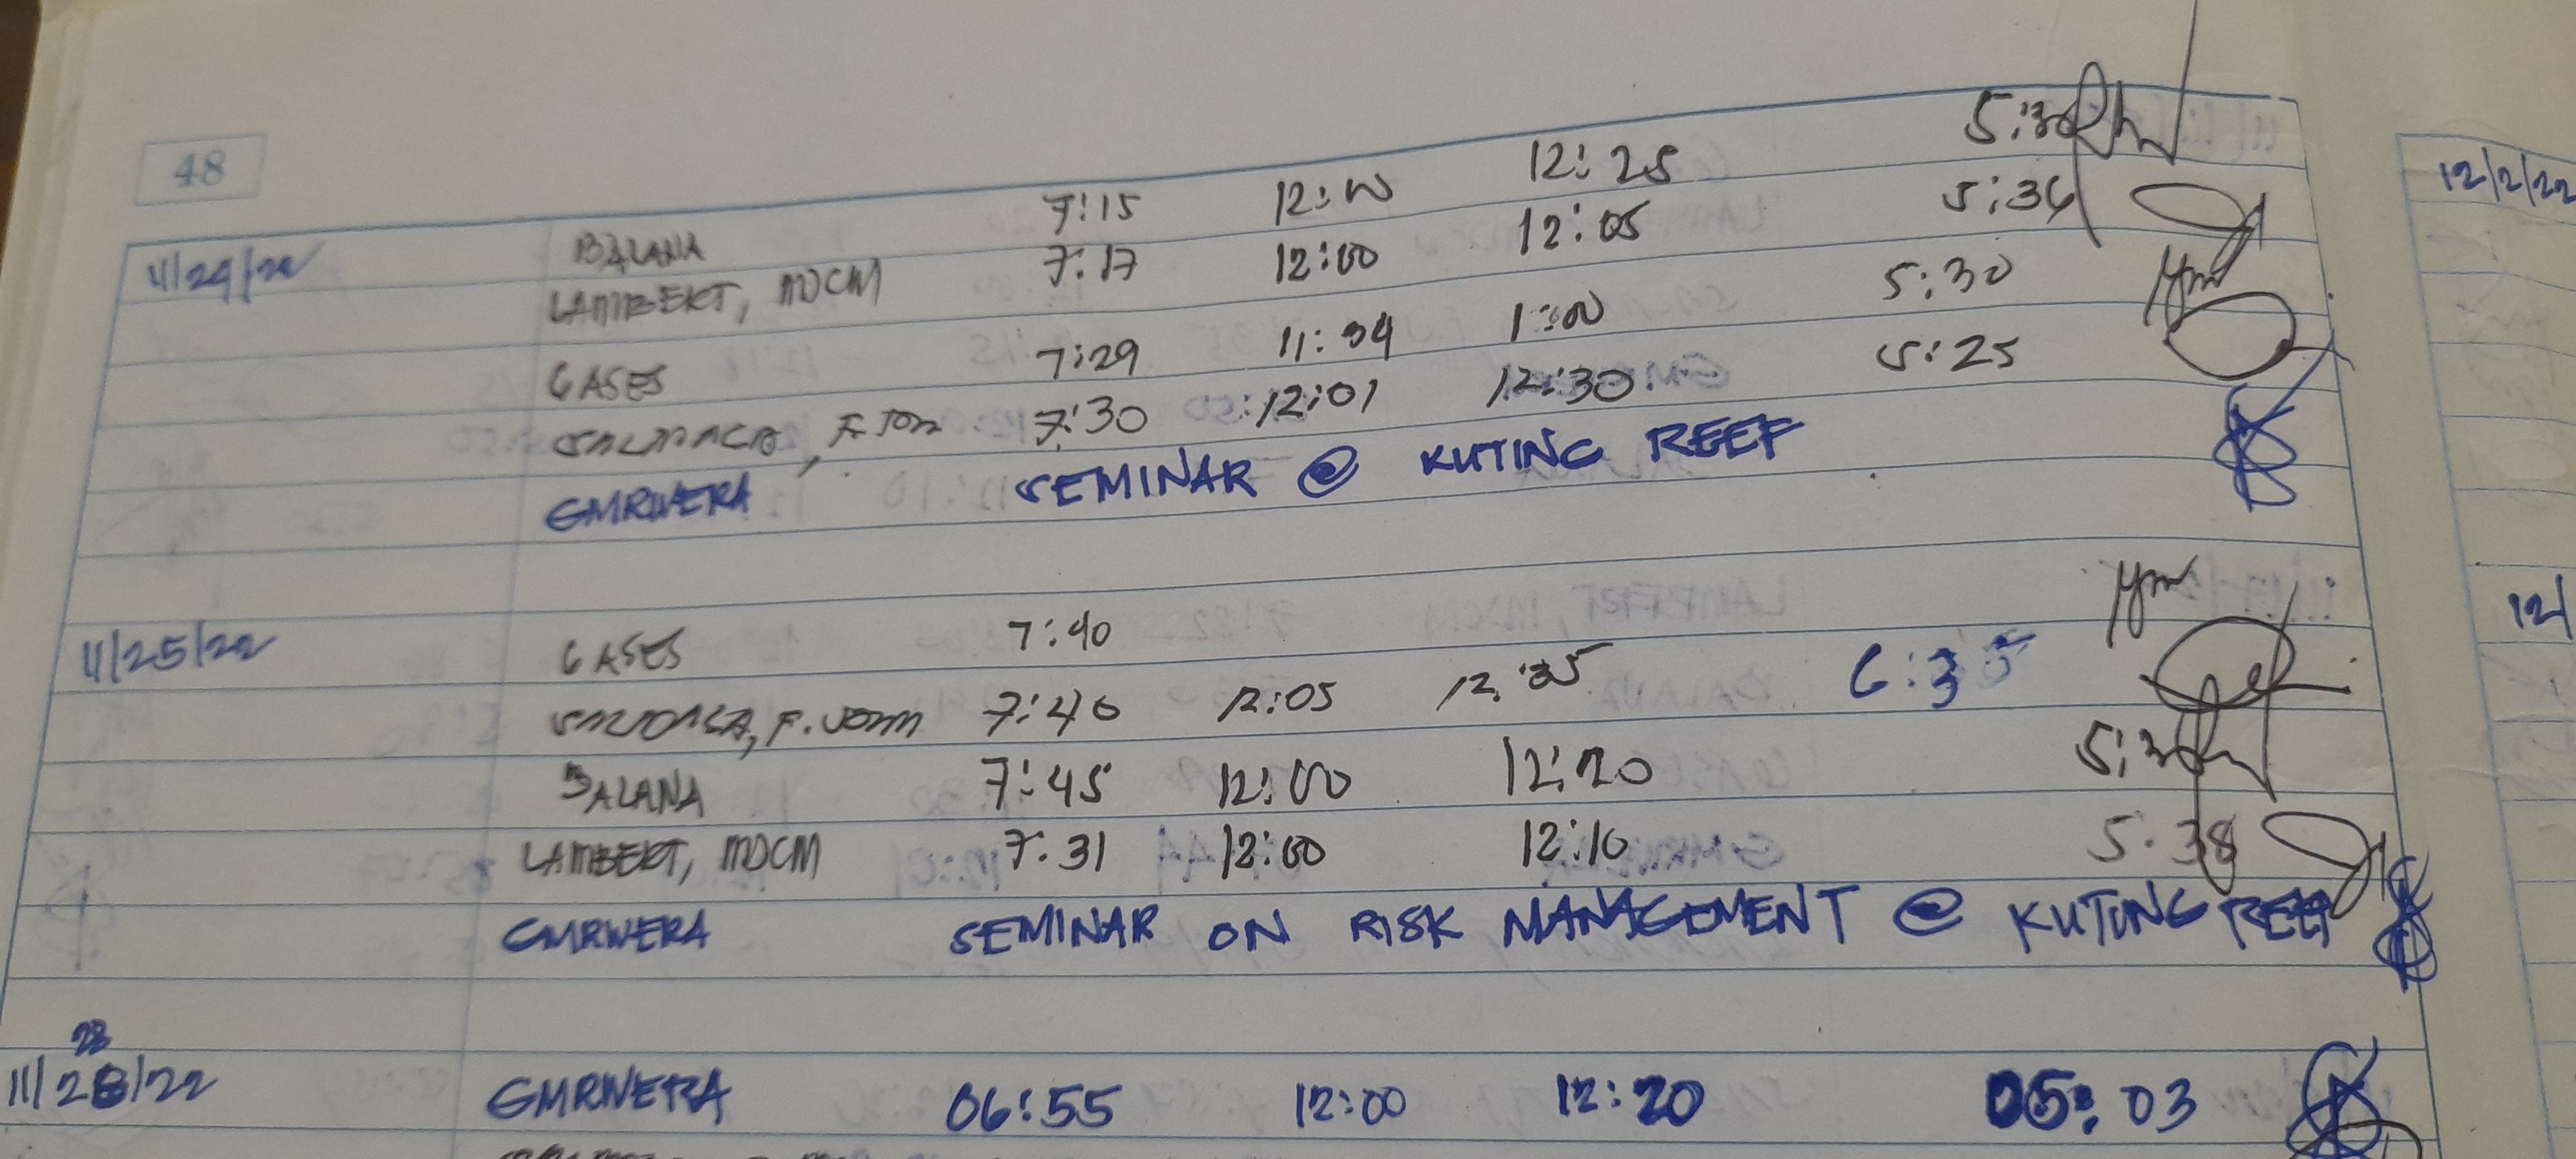 48
11/24/22 BALANA 7:15 12:00 12:25 5:30
LAMBERT, MDCM 7:17 12:00 12:05 5:36
GASES 7:29 11:34 1:00 5:30
7:30 12:01 12:30 5:25
GMRIVERA SEMINAR @ KUTING REEF
11/25/22 GASES 7:40
7:40 12:05 12:35 6:35
BALANA 7:45 12:00 12:20
LAMBERT, MDCM 7:31 12:00 12:10 5:38
GMRIVERA SEMINAR ON RISK MANAGEMENT @ KUTING REEF
28
11/28/22 GMRIVERA 06:55 12:00 12:20 05:03
12/2/22
12/